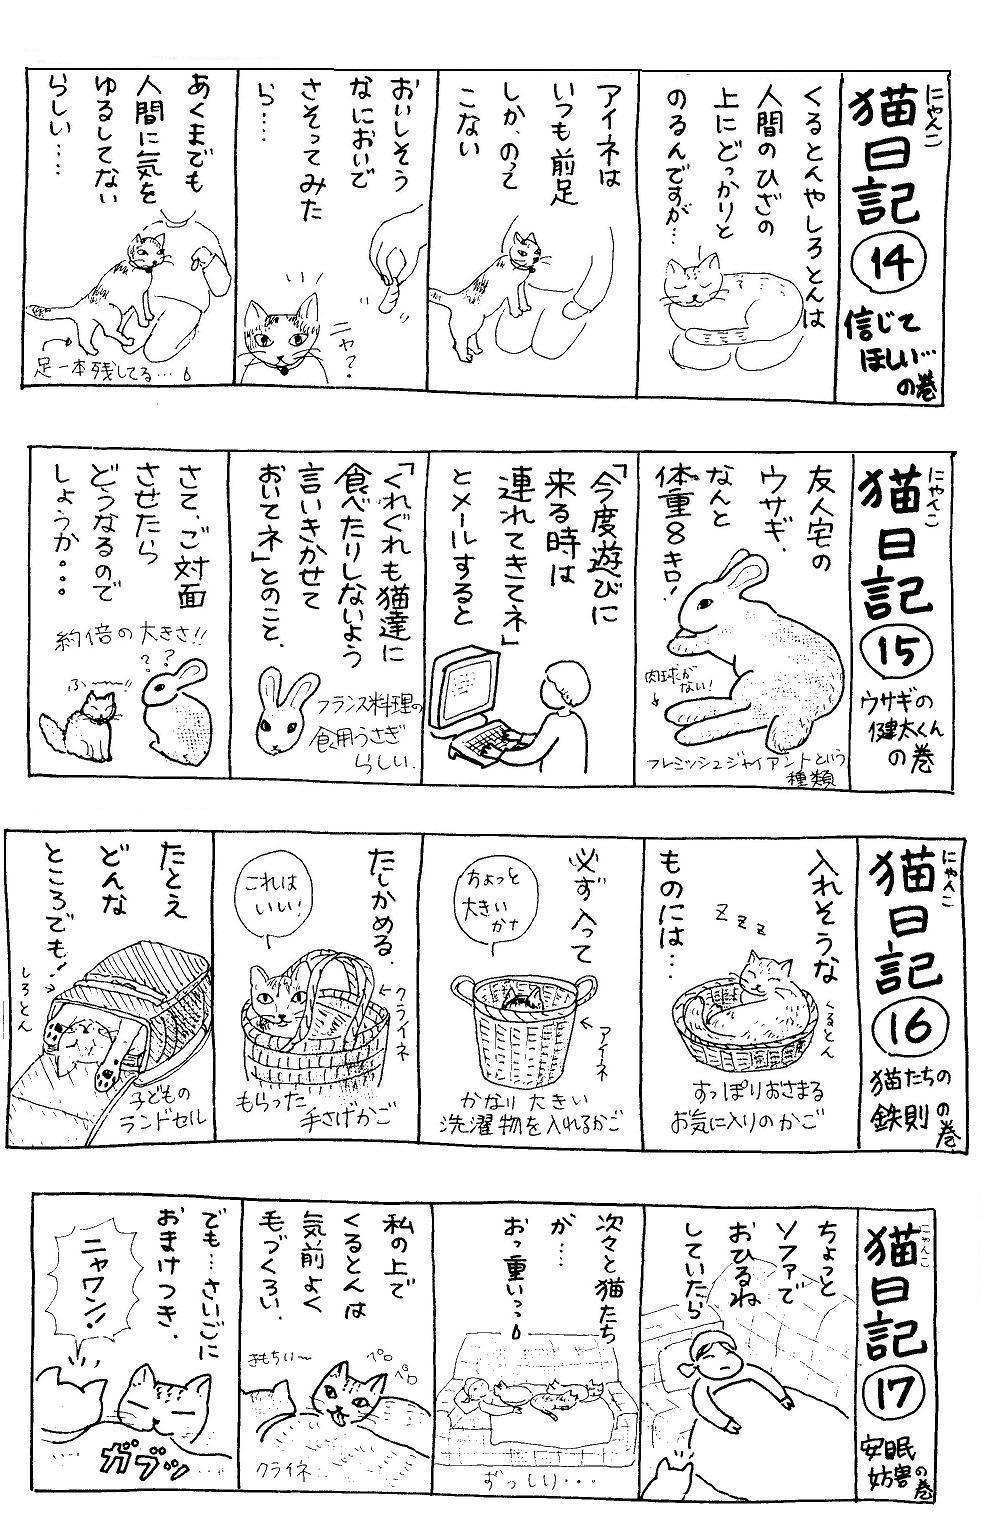 猫日記⑭
にゃんこ
信じて
ほしい…
の巻
くるとんやしろとんは
人間のひざの
上にどっかりと
のるんですが…
アイネは
いつも前足
しか、のって
こない
おいしそう
なにおいで
さそってみた
ら…
ニャ?
あくまでも
人間に気を
ゆるしてない
らしい…
足一本残してる…
猫日記⑮
にゃんこ
ウサギの
健太くん
の巻
友人宅の
ウサギ、
なんと
体重8キロ!
肉球が
ない!
フレミッシュジャイアントという
種類
「今度遊びに
来る時は
連れてきてネ」
とメールすると
「くれぐれも猫達に
食べたりしないよう
言いきかせて
おいてネ」とのこと、
フランス料理の
食用うさぎ
らしい.
さて、ご対面
させたら
どうなるので
しょうか。。。
約倍の大きさ!!
??
ふーーっ!!
猫日記⑯
にゃんこ
猫たちの
鉄則
の巻
入れそうな
ものには…
ZZZ
くるとん
すっぽりおさまる
お気に入りのかご
必ず入って
ちょっと
大きい
かナ
アイネ
かなり大きい
洗濯物を入れるかご
たしかめる.
これは
いい!
クライネ
もらった
手さげかご
たとえ
どんな
ところでも!
しろとん
子どもの
ランドセル
猫日記⑰
にゃんこ
安眠
妨害
の巻
ちょっと
ソファで
おひるね
していたら
次々と猫たち
が…
おっ重いっっ
ずっしり・・・
私の上で
くるとんは
気前よく
毛づくろい.
きもちい〜
ペロ
ペロ
クライネ
でも…さいごに
おまけつき.
ニャワン!
ガブッ